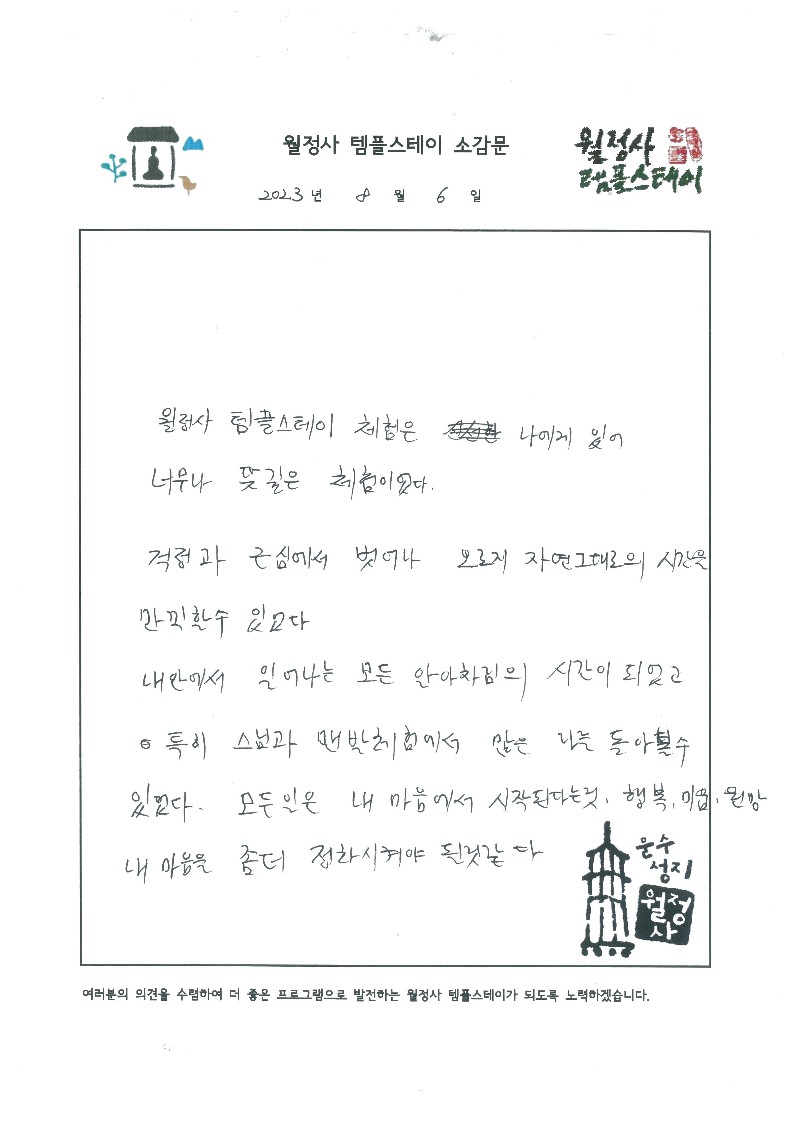 월정사 템플스테이 소감문
월정사
템플스테이
2023년 8월 6일
월정사 템플스테이 체험은 나에게 있어
너무나 뜻깊은 체험이었다.
걱정과 근심에서 벗어나 오로지 자연그대로의 시간을
만끽할수 있었다
내안에서 일어나는 모든 알아차림의 시간이 되었고
특히 스님과 맨발체험에서 많은 나를 돌아볼수
있었다. 모든일은 내 마음에서 시작된다는것. 행복, 미움, 원망
내 마음을 좀더 정화시켜야 될것같다
문수
성지
월정
사
여러분의 의견을 수렴하여 더 좋은 프로그램으로 발전하는 월정사 템플스테이가 되도록 노력하겠습니다.